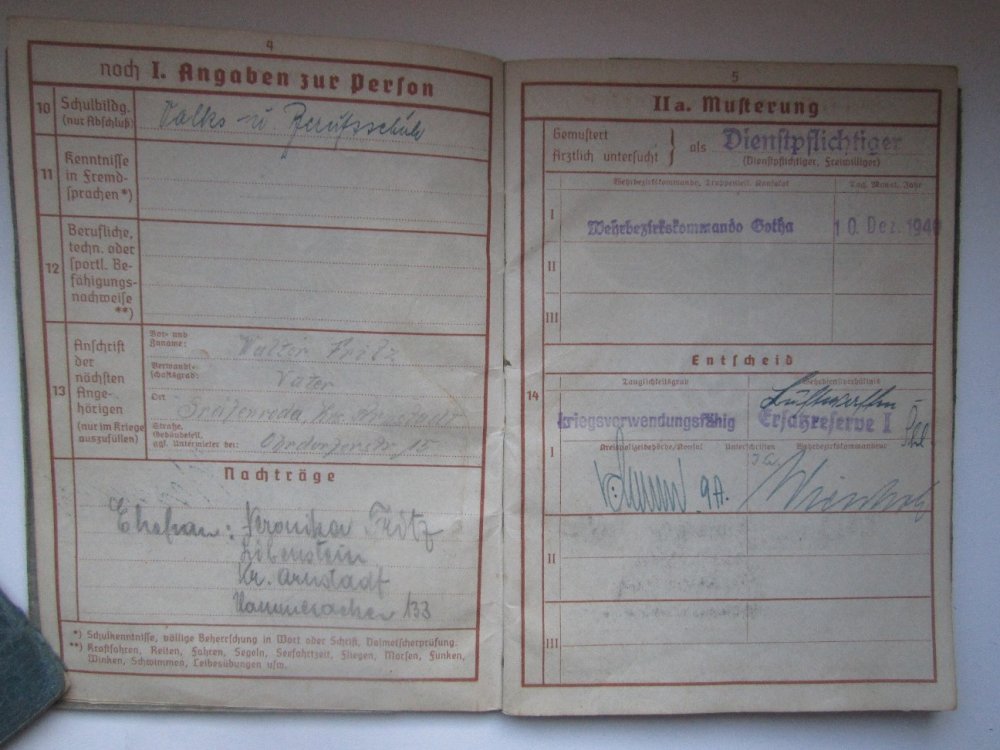 4
noch I. Angaben zur Person
10 Schulbildg. (nur Abschluß)
Volks- u Berufsschule
11 Kenntnisse in Fremdsprachen *)
12 Berufliche, techn. oder sportl. Befähigungsnachweise **)
13 Anschrift der nächsten Angehörigen (nur im Kriege auszufüllen)
Vor- und Zuname: Walter Fritz
Verwandtschaftsgrad: Vater
Ort
Kr. Arnstadt
Straße, Gebäudeteil, ggf. Untermieter bei: Ohrdruferstr. 15
Nachträge
Ehefrau: Veronika Fritz
Liebenstein
Kr. Arnstadt
133
*) Schulkenntnisse, völlige Beherrschung in Wort oder Schrift, Dolmetscherprüfung.
**) Kraftfahren, Reiten, Fahren, Segeln, Seefahrtzeit, Fliegen, Morsen, Funken,
Winken, Schwimmen, Leibesübungen usw.
5
II a. Musterung
Gemustert
Ärztlich untersucht } als Dienstpflichtiger
(Dienstpflichtiger, Freiwilliger)
Wehrbezirkskommando, Truppenteil, Konsulat Tag, Monat, Jahr
I Wehrbezirkskommando Gotha 10. Dez. 1940
II
III
Entscheid
14
Tauglichkeitsgrad Wehrdienstverhältnis
I kriegsverwendungsfähig Ersatzreserve I
Kreispolizeibehörde/Konsul Unterschriften Wehrbezirkskommandeur
II
III